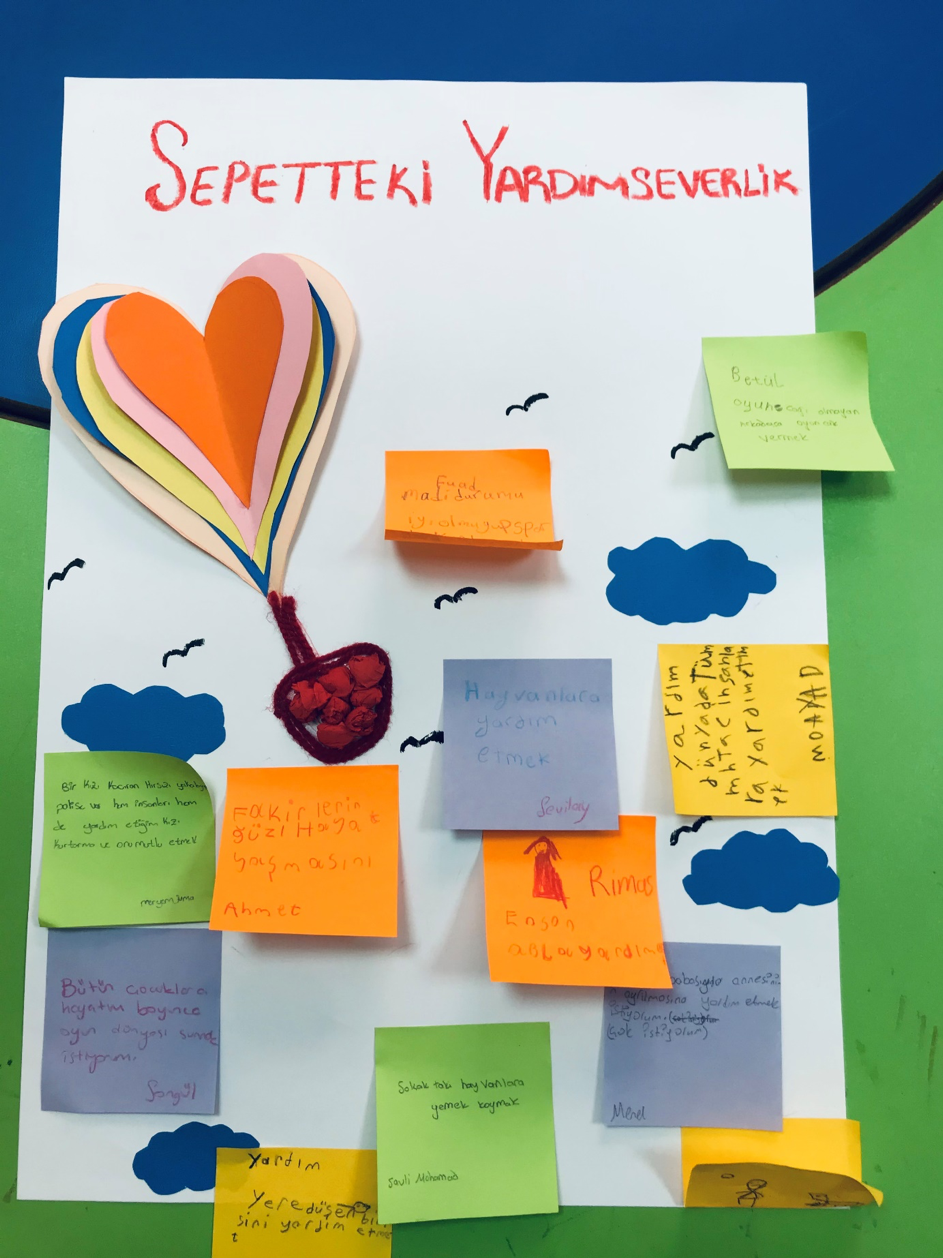 SEPETTEKİ YARDIMSEVERLİK
Betül
oyuncağı olmayan
oyuncak
vermek
Fuad
madi durumu
iyi olmuyup spor
Hayvanlara
yardım
etmek
Sevilay
yardım
dünyada Tüm
mhtac insanla
ra yardımetm
ek
MOAYAD
Bir Kızı Kacıran Hırsızı yakalayıp
polise ve hem insanları hem
de yardım etiğim Kızı
Kurtarma ve onu mutlu etmek
Meryem Juma
Fakirlerin
güzl Haya
yaşmasını
Ahmet
Rimas
Ensan
ablaya yardım
Bütün çocuklara
hayatım boyunca
oyun dünyası sunmak
istiyorum.
Songül
babasıyla annesini
ayrılmasına yardım etmek
istiyolum.
(çok istiyolum)
Meral
Sokak taki hayvanlara
yemek koymak
Savli Mohamad
Yardım
Yere düşen bi
sini yardım etme
t